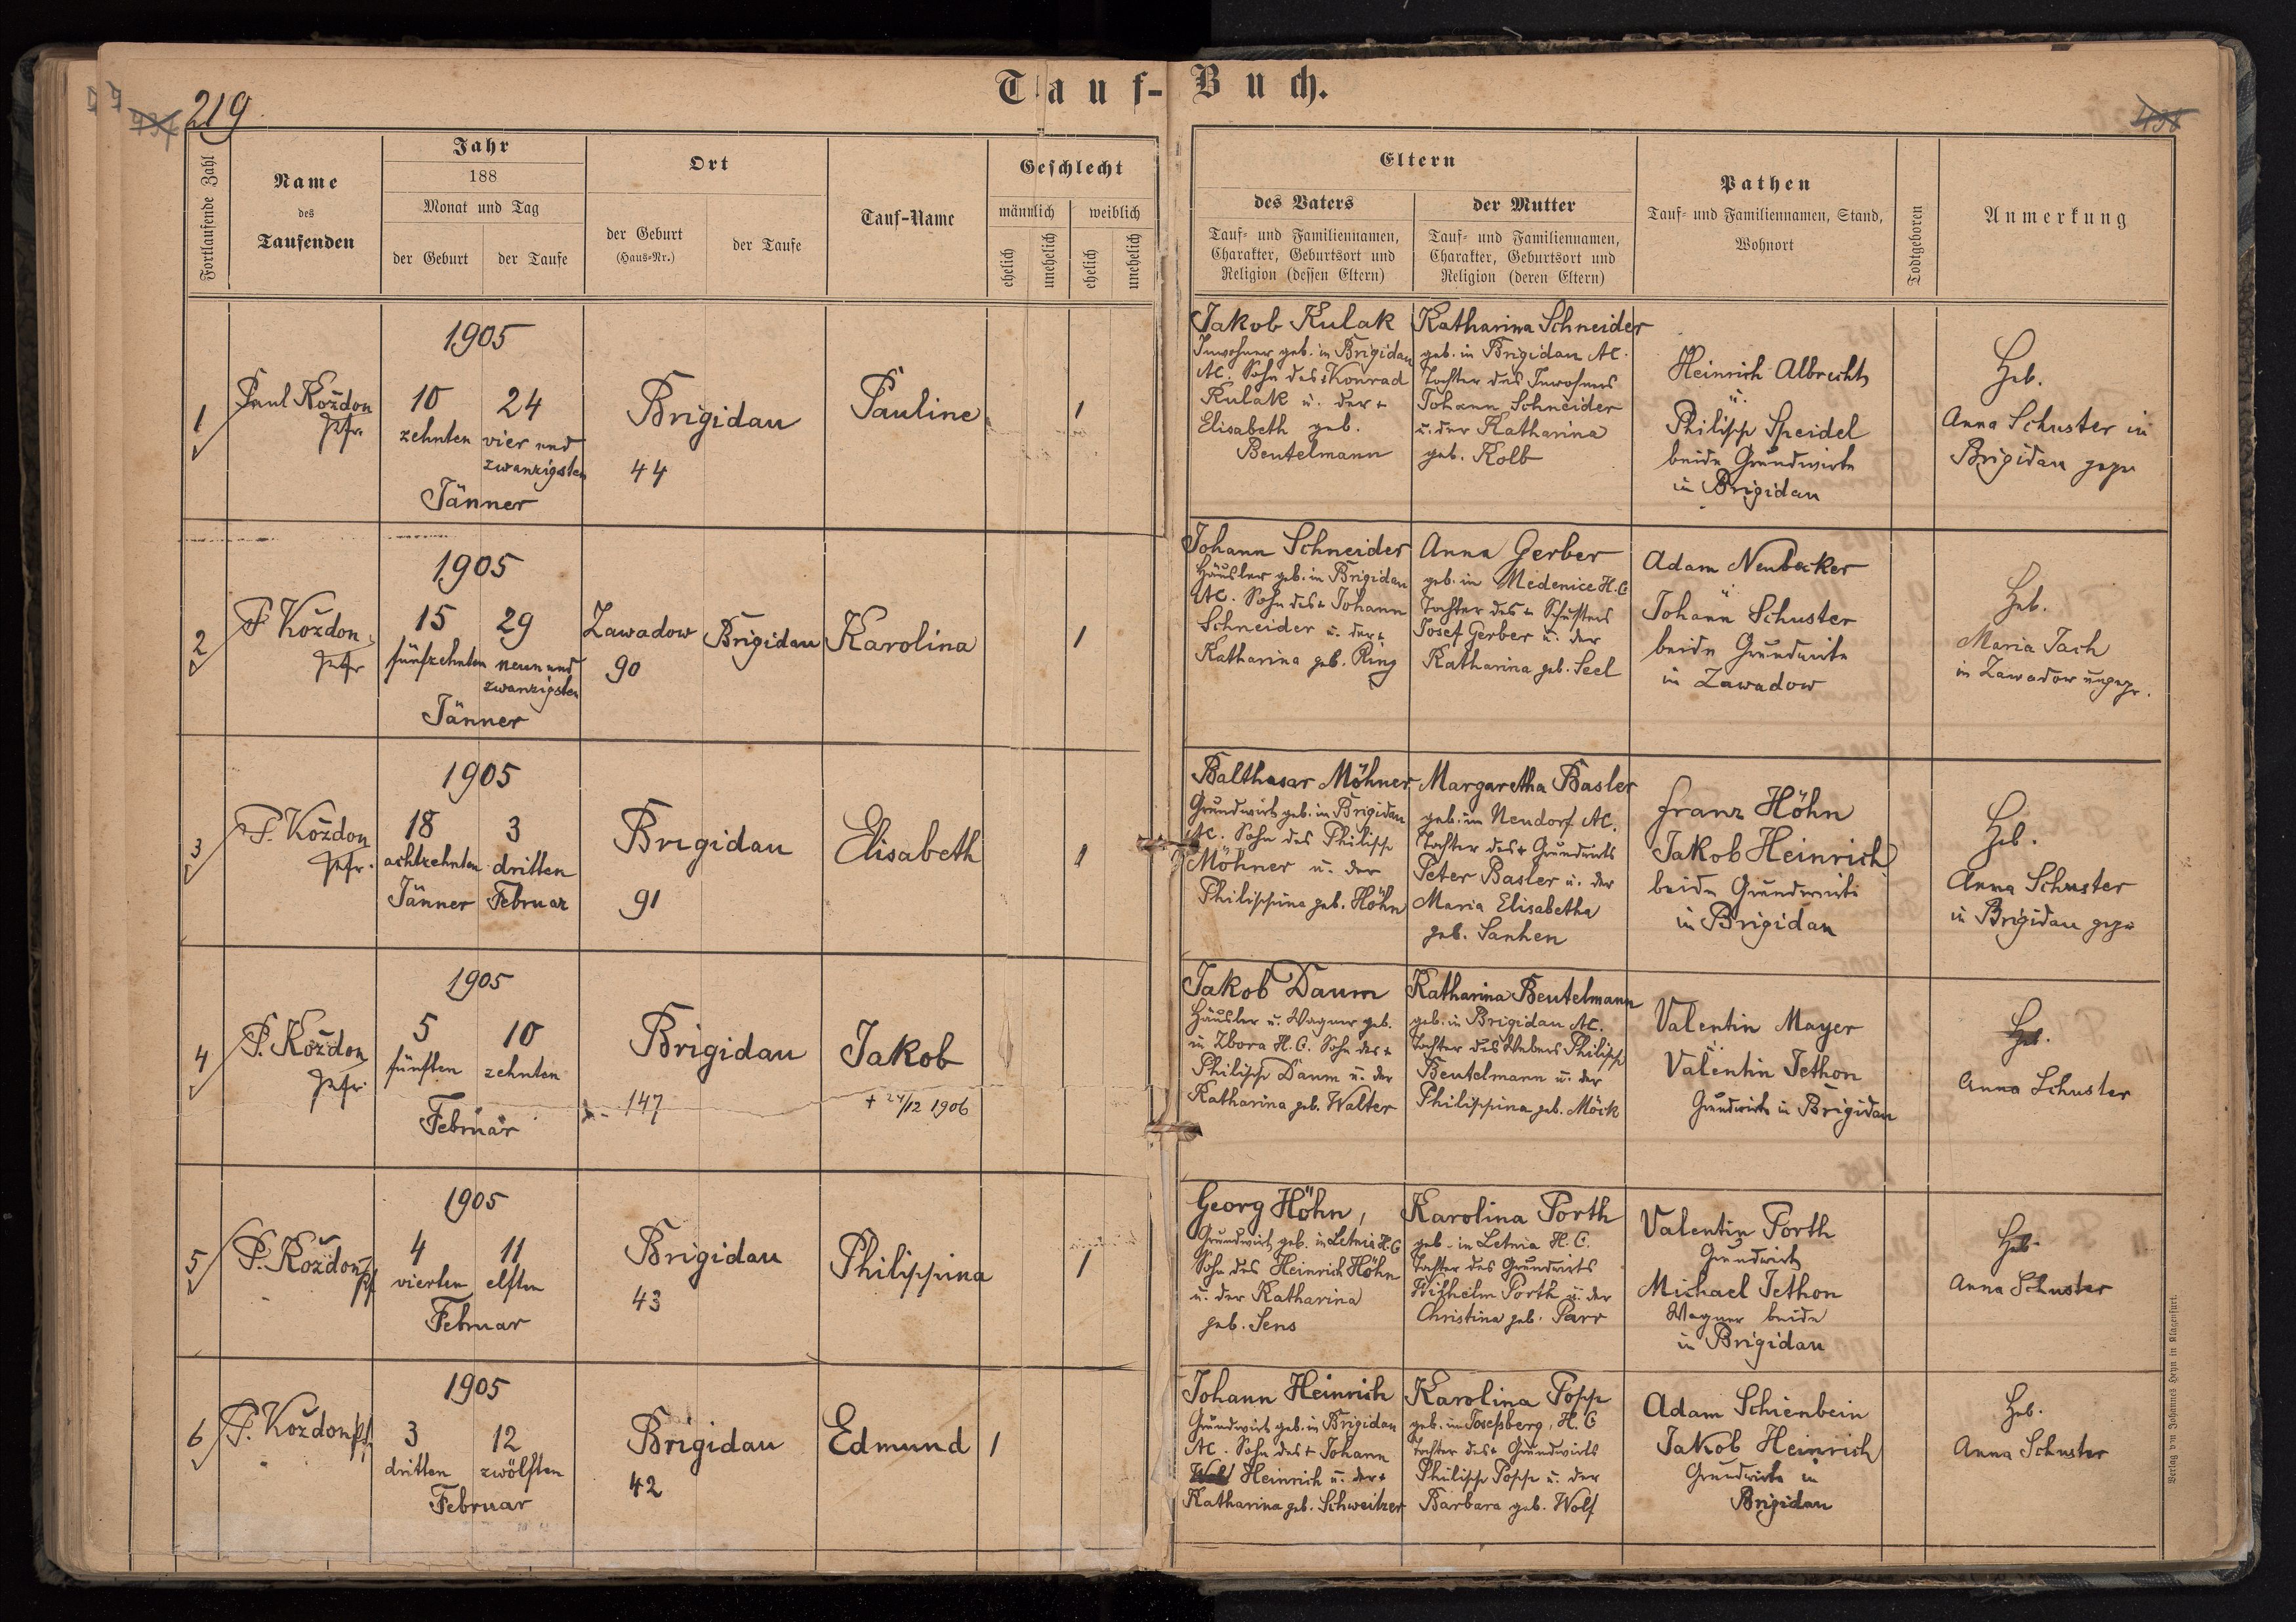 Tauf-Buch.
219
Fortlaufende Zahl
Name
des
Taufenden
Jahr
188
Monat und Tag
der Geburt
der Taufe
Ort
der Geburt
(Haus-Nr.)
der Taufe
Tauf-Name
Geschlecht
männlich
weiblich
ehelich
unehelich
ehelich
unehelich
Eltern
des Vaters
Tauf- und Familiennamen,
Charakter, Geburtsort und
Religion (dessen Eltern)
der Mutter
Tauf- und Familiennamen,
Charakter, Geburtsort und
Religion (deren Eltern)
Pathen
Tauf- und Familiennamen, Stand,
Wohnort
Todtgeboren
Anmerkung
1
Paul Koždon
Pfr.
1905
10
24
zehnten
vier und
zwanzigsten
Jänner
Brigidau
44
Pauline
1
Jakob Kulak
Inwohner geb. in Brigidau
AC. Sohn des + Konrad
Kulak u. der +
Elisabeth geb.
Beutelmann
Katharina Schneider
geb. in Brigidau AC.
Tochter des Inwohners
Johann Schneider
u. der Katharina
geb. Kolb
Heinrich Albrecht
u.
Philipp Speidel
beide Grundwirte
in Brigidau
Heb.
Anna Schuster in
Brigidau gepr
2
P. Koždon
Pfr
1905
15
29
fünfzehnten
neun und
zwanzigsten
Jänner
Zawadow
90
Brigidau
Karolina
1
Johann Schneider
Häusler geb. in Brigidau
AC. Sohn des + Johann
Schneider u. der +
Katharina geb. Ring
Anna Gerber
geb. in Medenice H.C
Tochter des + Schusters
Josef Gerber u. der
Katharina geb. Seel
Adam Neubecker
u
Johann Schuster
beide Grundwirte
in Zawadow
Heb.
Maria Jach
in Zawadow ungepr.
3
P. Koždon
Pfr.
1905
18
3
achtzehnten
dritten
Jänner
Februar
Brigidau
91
Elisabeth
1
Balthasar Möhner
Grundwirt geb. in Brigidau
AC. Sohn des Philipp
Möhner u. der
Philippina geb. Höhn
Margaretha Basler
geb. in Neudorf AC.
Tochter des + Grundwirts
Peter Basler u. der
Maria Elisabetha
geb. Sanhen
Franz Höhn
Jakob Heinrich
beide Grundwirte
in Brigidau
Heb.
Anna Schuster
in Brigidau gepr
4
P. Koždon
Pfr
1905
5
10
fünften
zehnten
Februar
Brigidau
147
Jakob
+ 24/12 1906
Jakob Daum
Häusler u. Wagner geb.
in Zbora H.C. Sohn des +
Philipp Daum u. der
Katharina geb. Walter
Katharina Beutelmann
geb. in Brigidau AC.
Tochter des Webers Philipp
Beutelmann u. der
Philippina geb. Möck
Valentin Mayer
u.
Valentin Jethon
Grundwirte in Brigidau
Heb.
Anna Schuster
5
P. Koždon
Pf
1905
4
11
vierten
elften
Februar
Brigidau
43
Philippina
1
Georg Höhn,
Grundwirt geb. in Letnia H.C
Sohn des Heinrich Höhn
u. der Katharina
geb. Sens
Karolina Porth
geb. in Letnia H.C.
Tochter des Grundwirts
Wilhelm Porth u. der
Christina geb. Parr
Valentin Porth
Grundwirt
Michael Jethon
Wagner beide
in Brigidau
Heb.
Anna Schuster
6
P. Koždon Pfr
1905
3
12
dritten
zwölften
Februar
Brigidau
42
Edmund
1
Johann Heinrich
Grundwirt geb. in Brigidau
AC. Sohn des + Johann
Heinrich u. der +
Katharina geb. Schweitzer
Karolina Popp
geb. in Josefsberg, H.C
Tochter des + Grundwirts
Philipp Popp u. der
Barbara geb. Wolf
Adam Schienbein
Jakob Heinrich
Grundwirte in
Brigidau
Heb.
Anna Schuster
Verlag von Johannes Heyn in Klagenfurt.